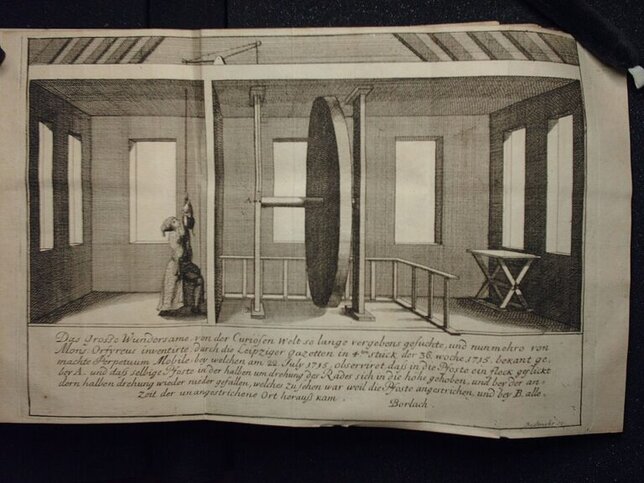 A
Das grosse Wundersame, von der Curiösen Welt so lange vergebens gesuchte, und nunmehro von
Mons Orfyreus inventirte, durch die Leipziger gazetten in 4ten stück der 36. woche, 1715. bekant ge,
machte Perpetuum Mobile. bey welchen am 22 July 1715. observiret daß in die Pfoste ein fleck geflickt
bey A. und daß selbige Pfoste in der halben um drehung des Rades sich in die höhe gehoben, und bey der an,
dern halben drehung wieder nieder gefallen, welches zu sehen war weil die Pfoste angestrichen, und bey B. alle,
zeit der unangestrichene Ort herauß kam.
Borlach.